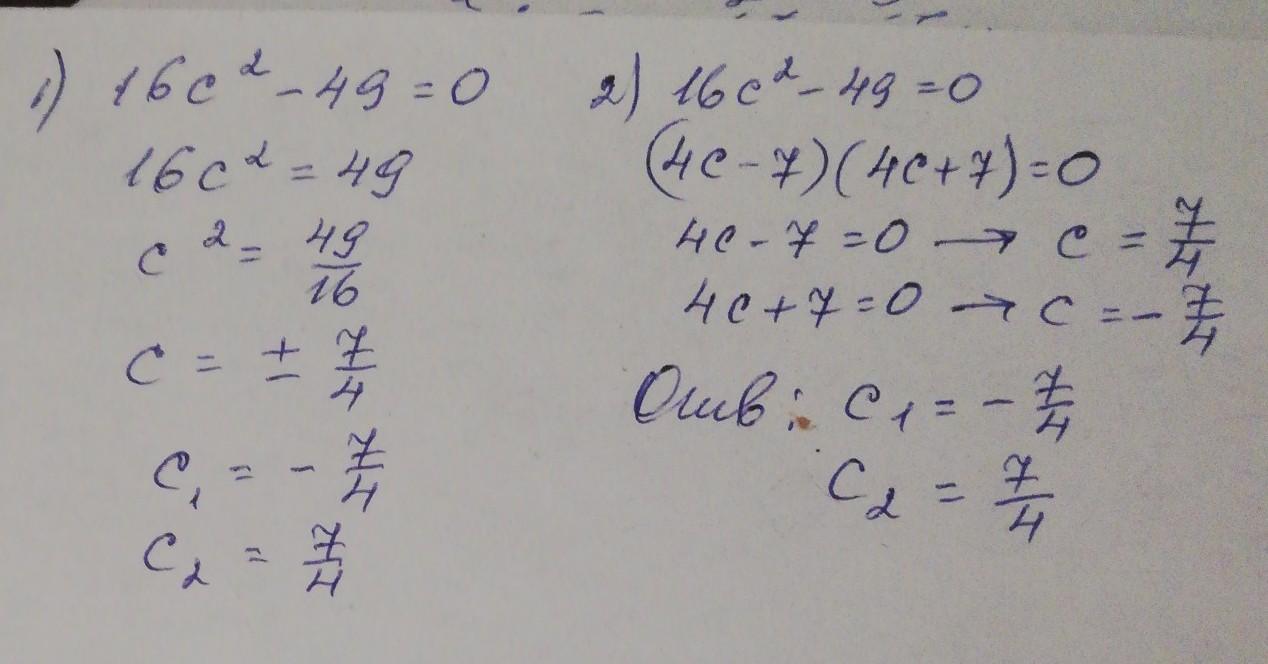 1) 16c² - 49 = 0
16c² = 49
c² = 49/16
c = ± 7/4
c₁ = - 7/4
c₂ = 7/4
2) 16c² - 49 = 0
(4c - 7)(4c + 7) = 0
4c - 7 = 0 → c = 7/4
4c + 7 = 0 → c = - 7/4
Отв: c₁ = - 7/4
c₂ = 7/4